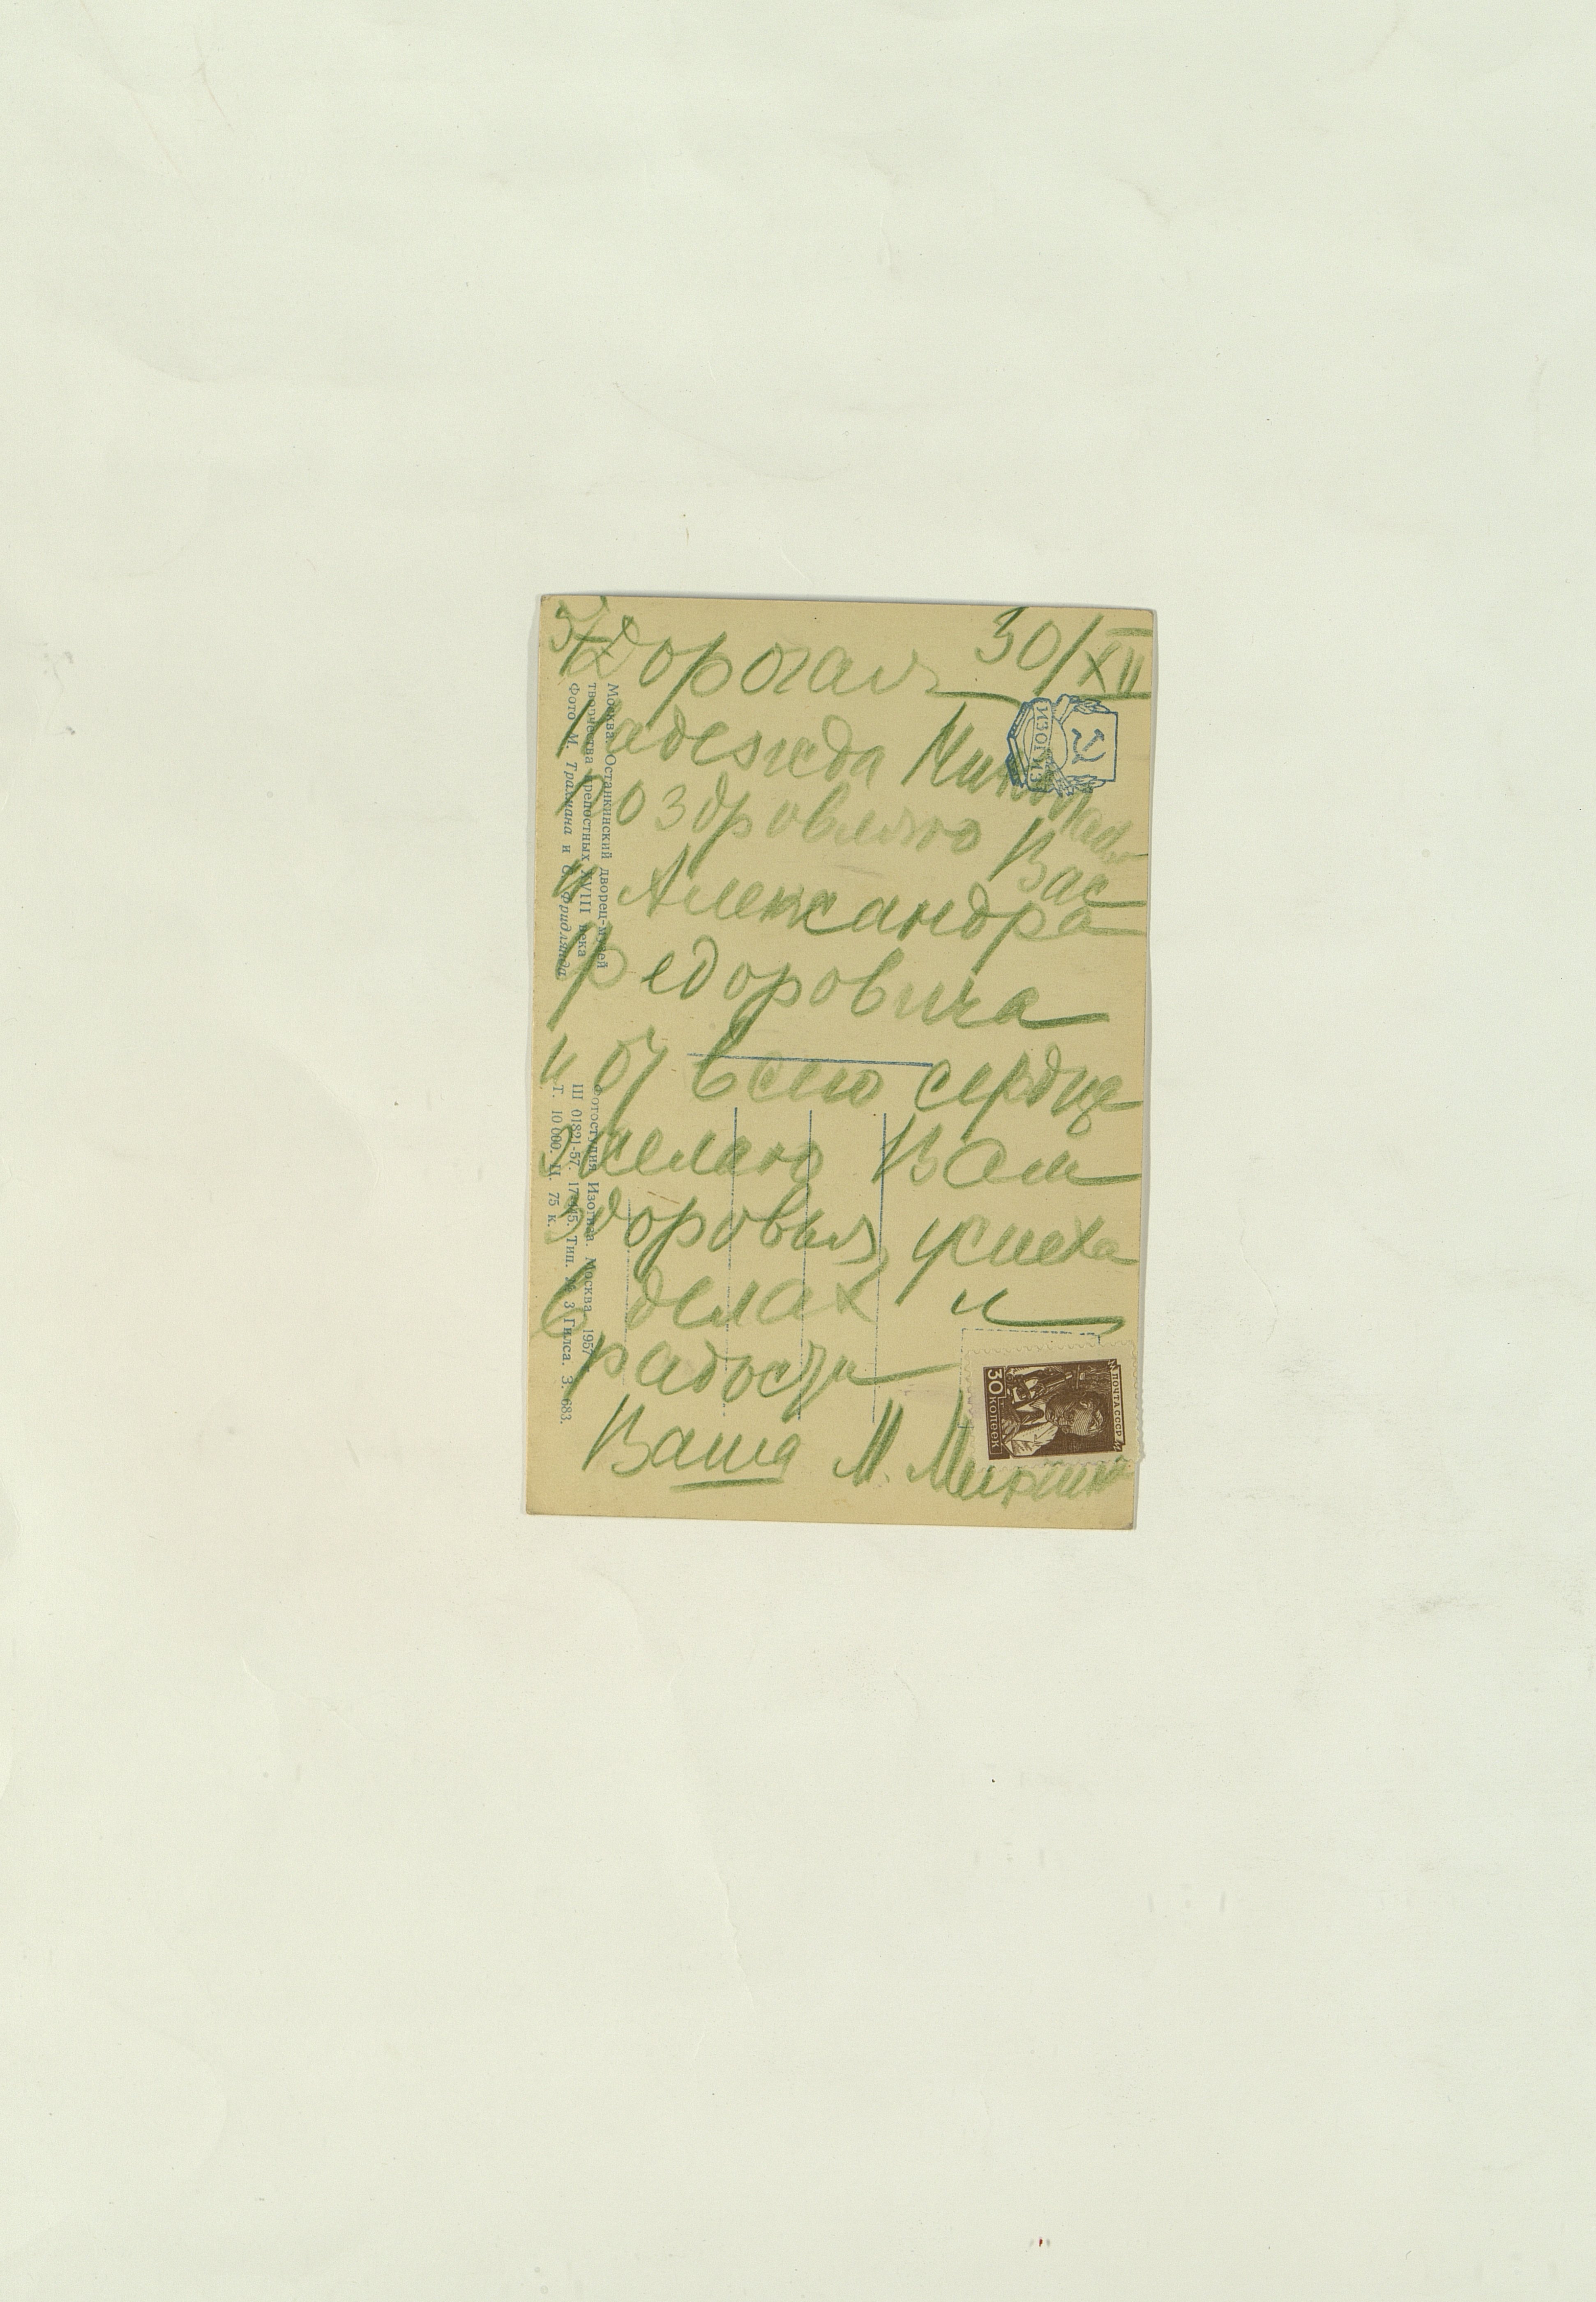 Дорогая 30/XII
Надежда Николаевна
поздравляю Вас
и Александра
Федоровича
и от всего сердца
желаю Вам
здоровья, успеха
в делах и
радости
Ваша М.
Москва. Останкинский дворец-музей
творчества крепостных XVIII века
Фото М. Трахмана и Фридлянда
Фотостудия Изогиза. Москва. 1957
Ш 01821-57. Тип. № 3 Гизлегпрома. З. 683.
Т. 10 000. Ц. 75 к.
ИЗОГИЗ
ПОЧТА СССР
30 копеек